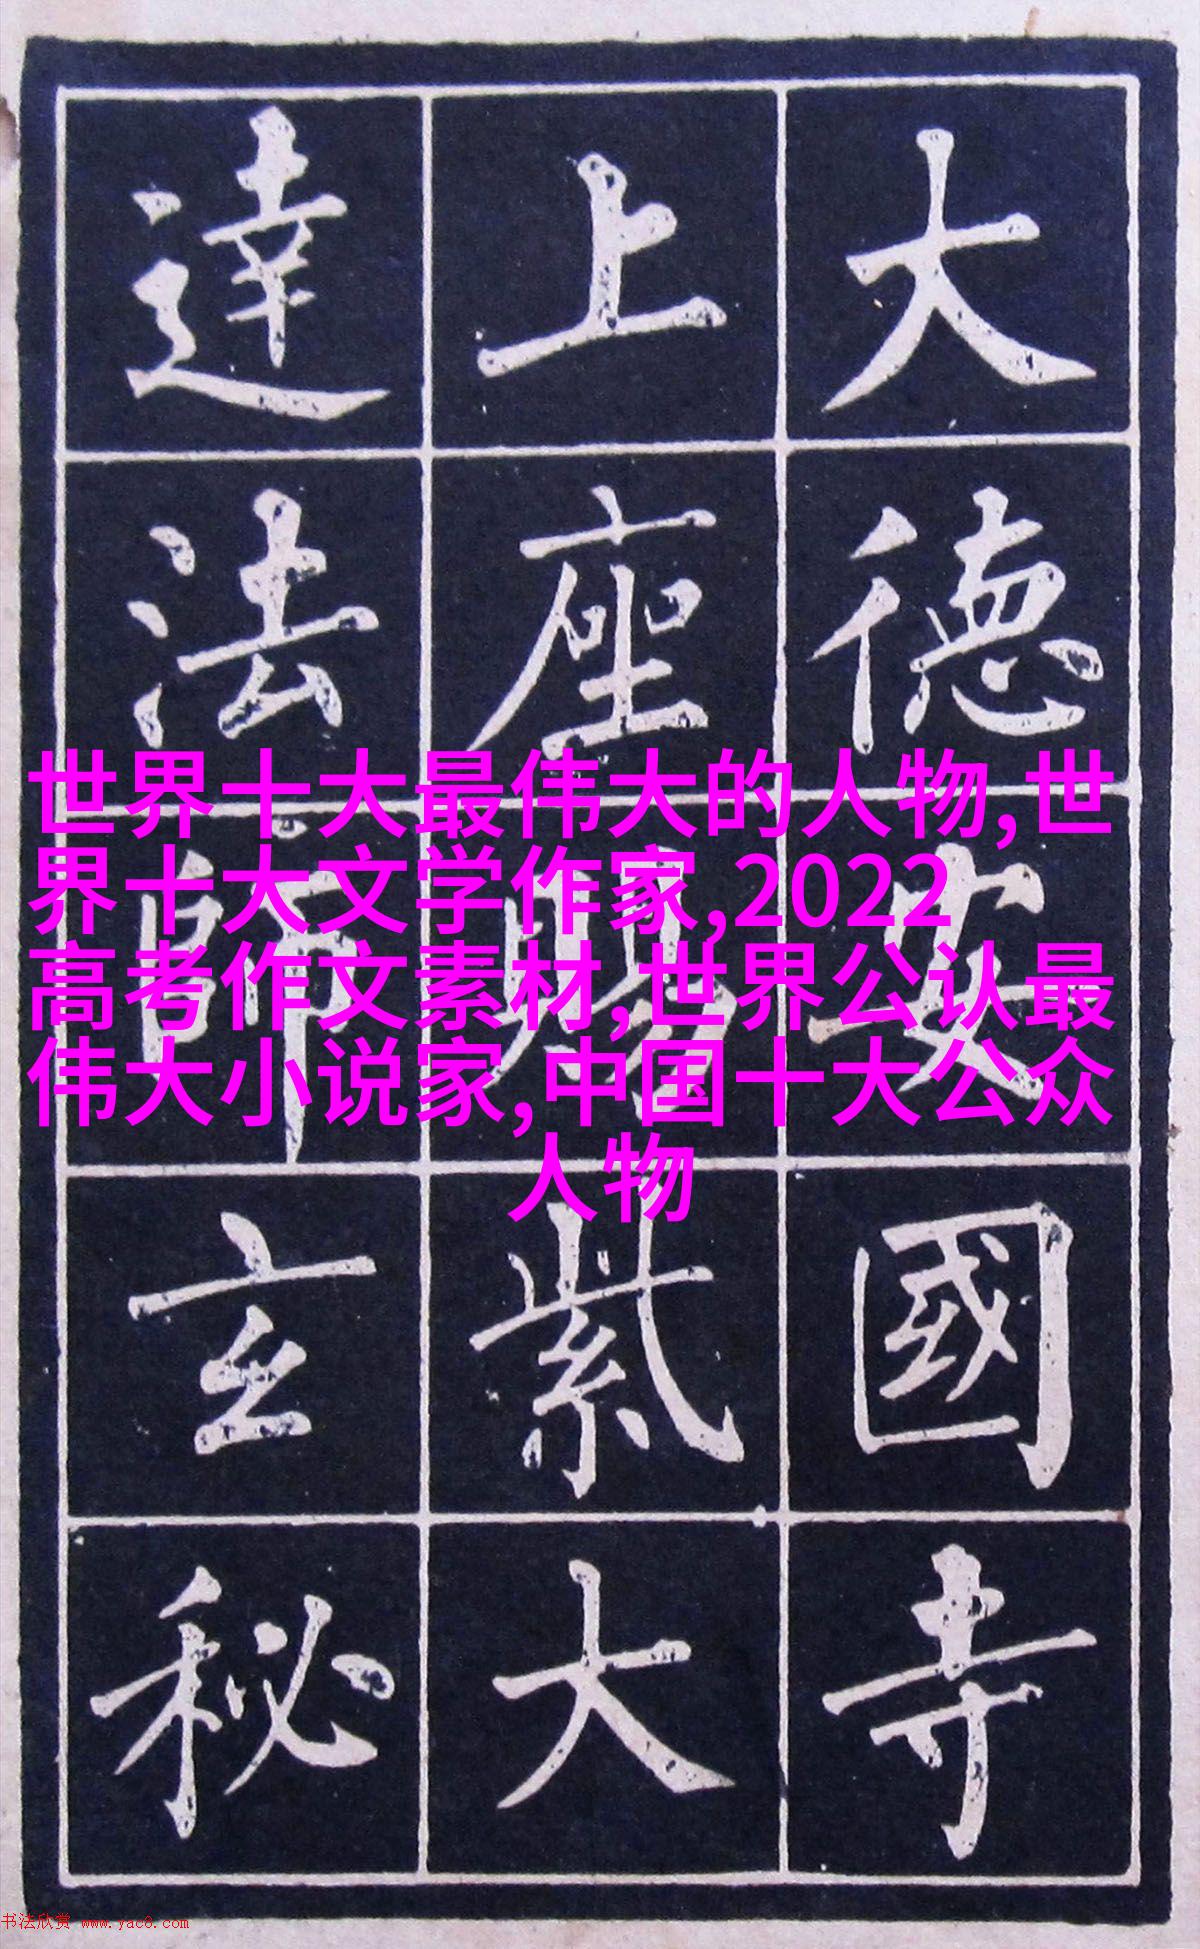 大德安國寺
上座賜紫大
達法師玄秘
世界十大最伟大的人物,世
界十大文学作家,2022
高考作文素材,世界公认最
伟大小说家,中国十大公众
人物
书法欣赏 www.yac8.com